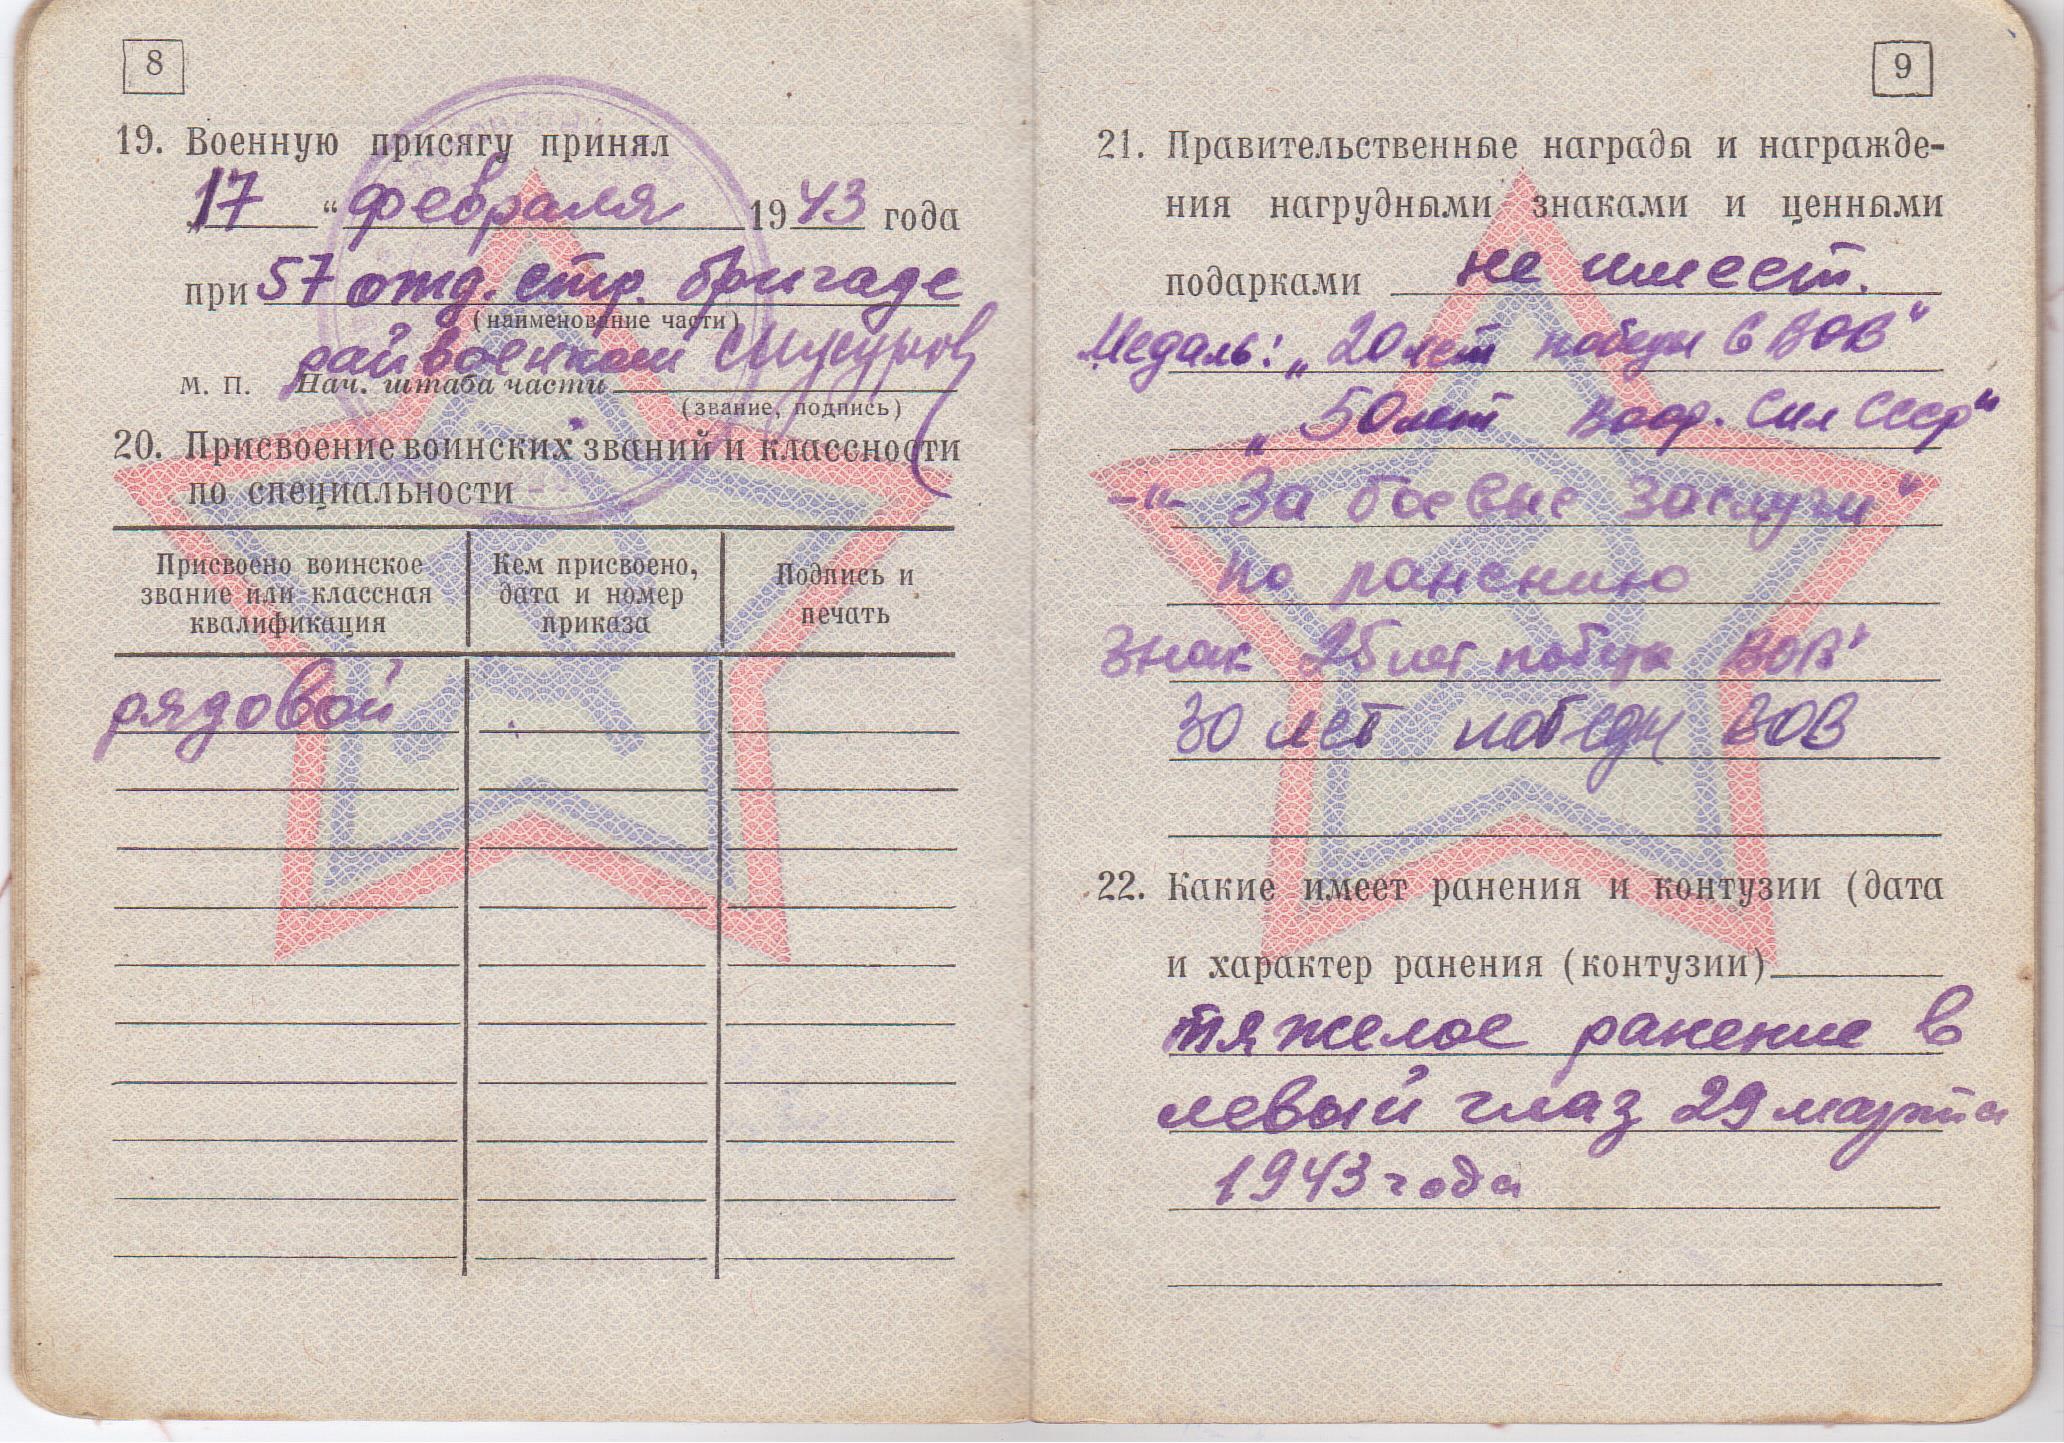 8
19. Военную присягу принял
„17“ февраля 1943 года
при 57 отд. стр. бригаде
(наименование части)
райвоенком
М. П. Нач. штаба части
(звание, подпись)
20. Присвоение воинских званий и классности
по специальности
Присвоено воинское звание или классная квалификация
Кем присвоено, дата и номер приказа
Подпись и печать
рядовой
9
21. Правительственные награды и награжде-
ния нагрудными знаками и ценными
подарками не имеет.
Медаль: „20 лет победы в ВОВ“
„50 лет Воор. Сил СССР“
-"- За боевые заслуги"
по ранению
Знак 25 лет победы ВОВ"
30 лет победы ВОВ
22. Какие имеет ранения и контузии (дата
и характер ранения (контузии)
тяжелое ранение в
левый глаз 29 марта
1943 года